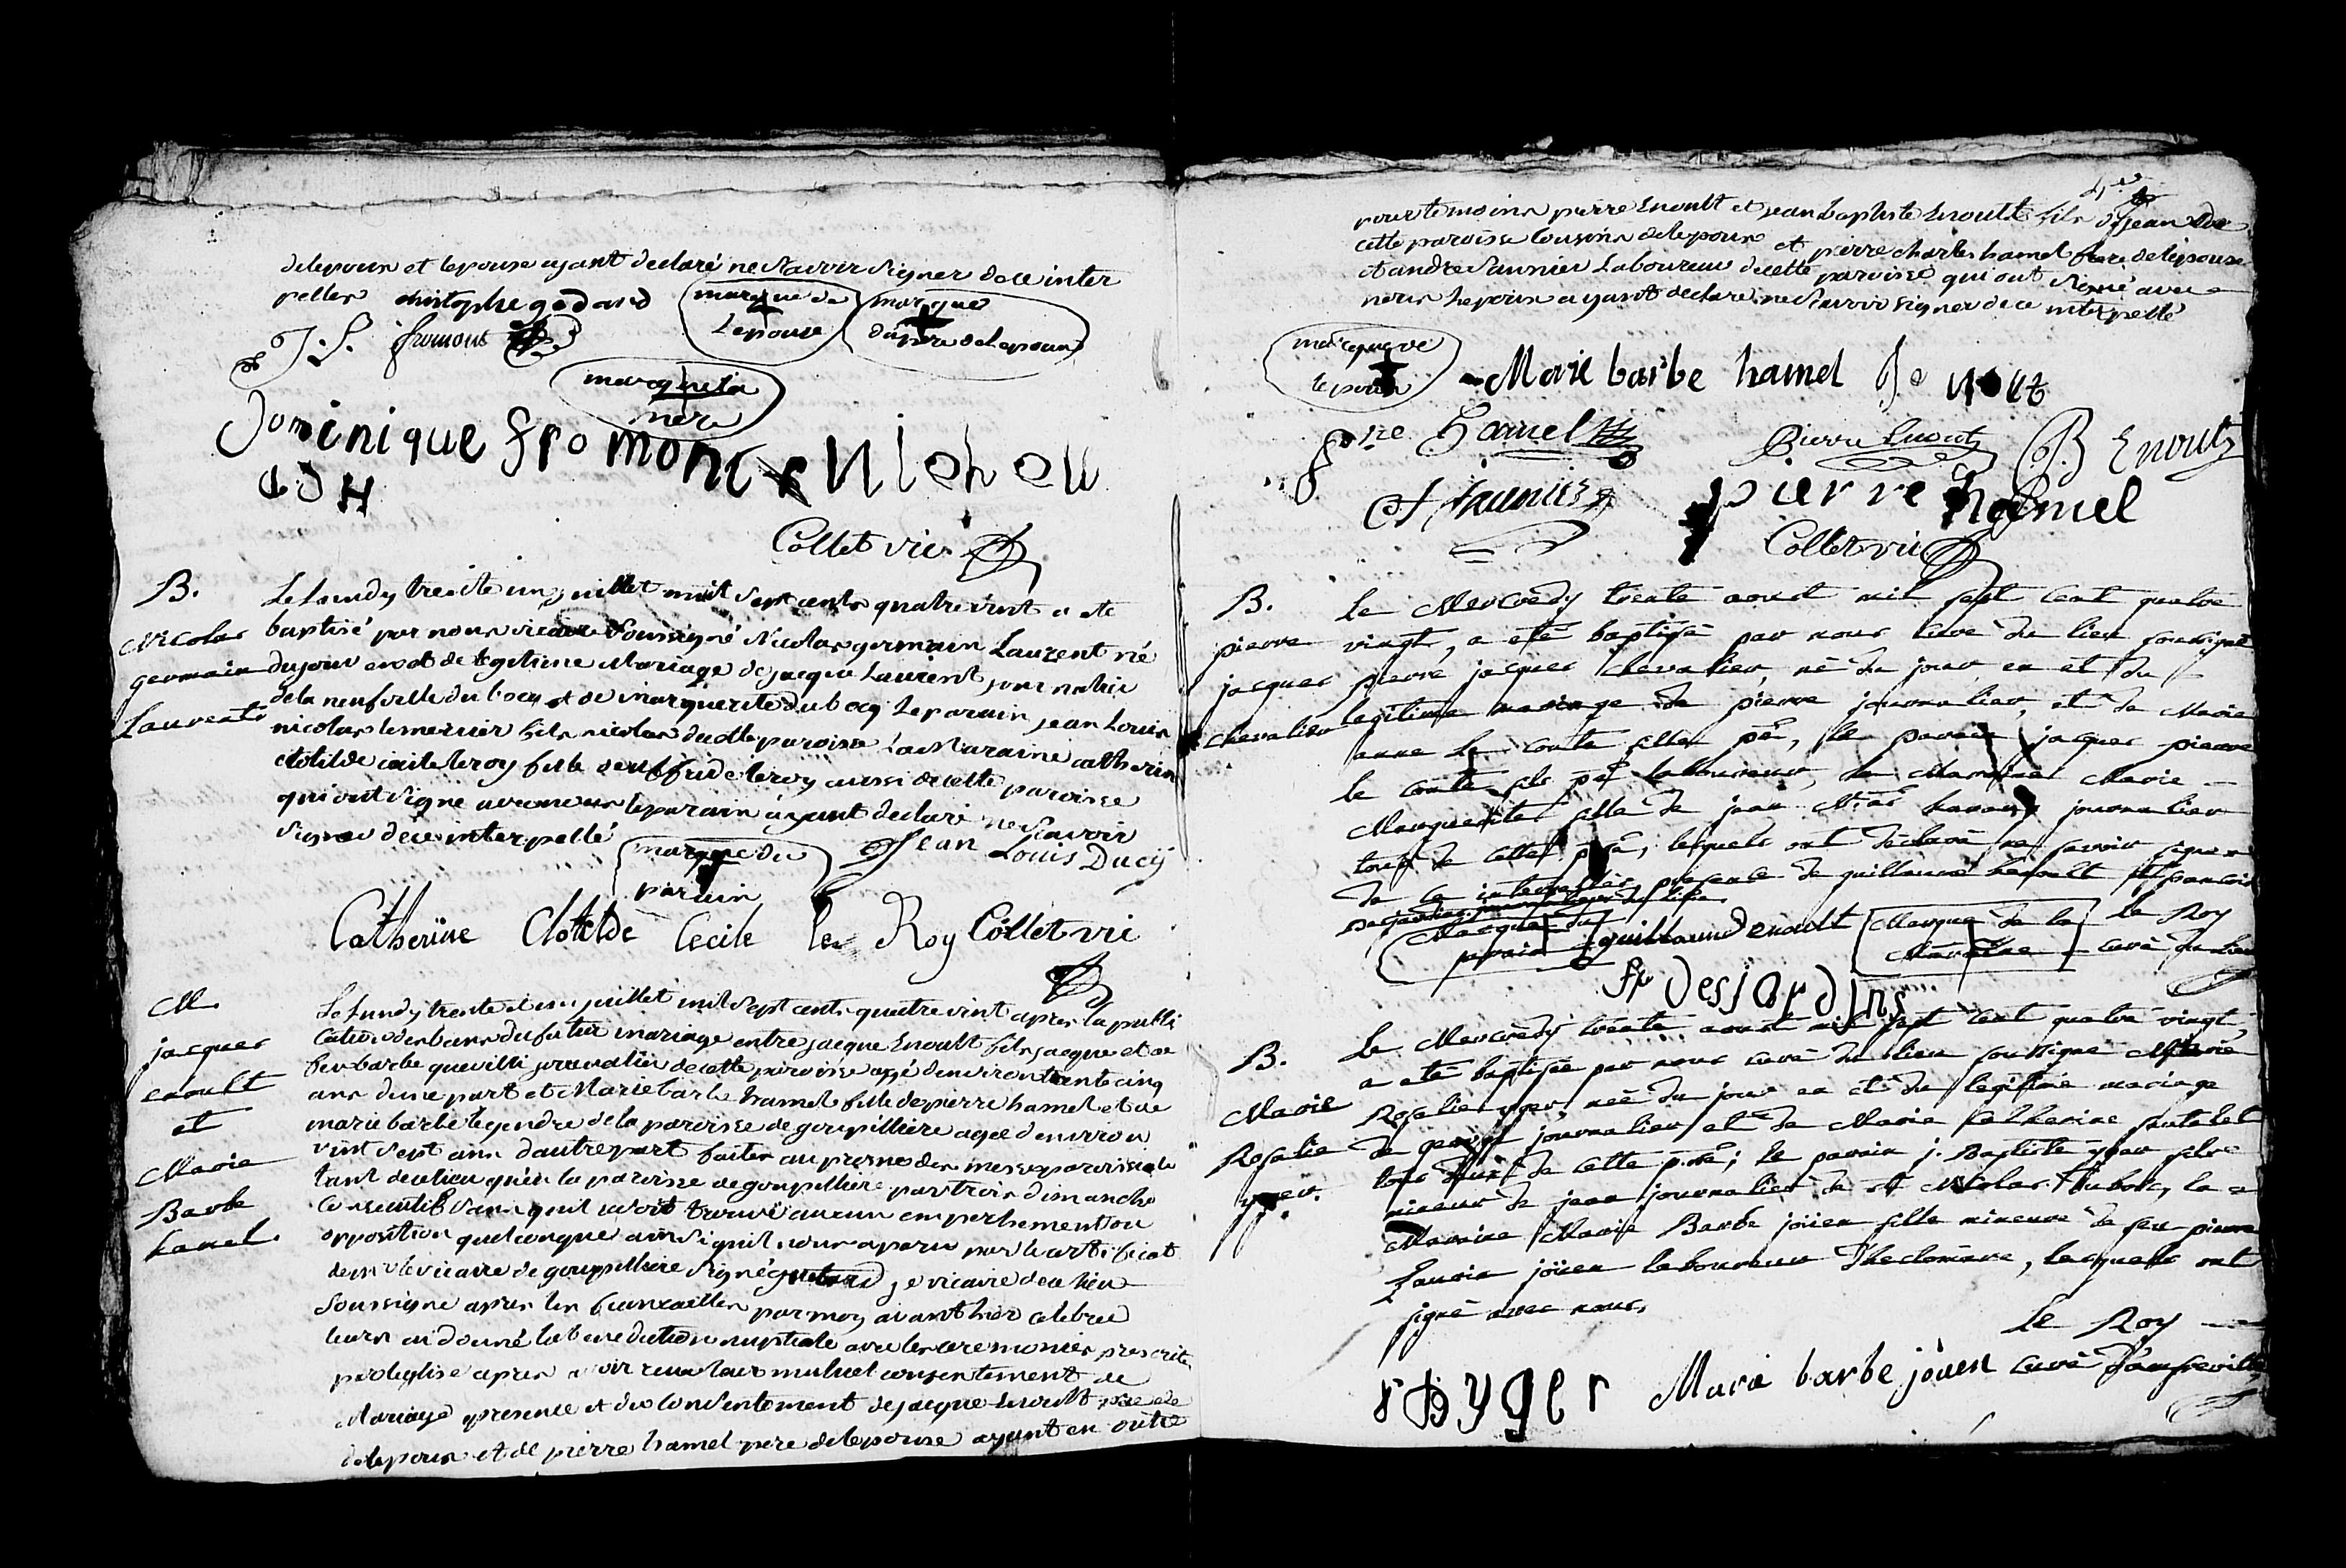 delepoux et lepouse ayant declaré ne Savoir Signer dece inter
peller christophe godard
marque de Lepouse
marque du pere de Lepoux
J. L. fromont
marque la mere
Dominique fromont Michell
Collet vic.
B.
Nicolas
germain
Laurent
Le Lundy trente un juillet mil Sept cents quatre vint a été
baptisé par nous vicaire Soussigné Nicolas germain Laurent né
dujour en et de legitime Mariage de jacque Laurent journalier
de la neufville du bocq et de marguerite dubocq Le parain jean Louis
nicolas lemercier fils nicolas de cette paroisse La Maraine catherine
clotilde cecile leroy fille de leroy aussi de cette paroisse
qui ont Signe avec nous le parain ayant declaré ne Savoir
Signer de ce interpellé
marque du parain
Jean Louis Ducÿ
Catherine Clotilde Cecile le Roy Collet vic
M.
jacques
enoult
et
Marie
Barbe
hamel.
Le Lundy trente et un juillet mil Sept cents quatre vint apres la publi
cation des bans du futur mariage entre jacque Enoult fils jacque et de
feu barbe quevilli journalier de cette paroisse agé denviron trente cinq
ans dune part et Marie barbe hamel fille de pierre hamel et de
marie barbe legendre de la paroisse de goupilliere agée denviron
vint Sept ans dautre part faites au prosne des messes paroissiale
tant de ce lieu qu'en la paroisse de goupilliere par trois dimanche
consecutifs Sans quil se soit trouvé aucun empeschement ou
opposition quelconque ainsi quil nous aparu par le certificat
de mr le vicaire de goupilliere Signé je vicaire de ce lieu
Soussigne apres les fiancailles par moy avant hier celebree
leurs ai donné la benediction nuptiale avec les ceremonies prescrites
par leglise apres avoir receu leur mutuel consentement de
Mariage presence et du consentement de jacque Enoult pere
delepoux et de pierre hamel pere de lepouse ayant en outre
pour temoins pierre Enoult et jean baptiste Enoult fils de jean de
cette paroisse Cousins delepoux et pierre charles hamel frere de lepouse
et andre Saunier Laboureur de cette paroisse qui ont Signé avec
nous lepoux ayant declaré ne Savoir Signer de ce interpellé
marque de lepoux
Marie barbe hamel
hamel Pierre Enoult B Enoult
A Saunier pierre hamel
Collet vic
B.
pierre
jacques
chevalier
Le Mercredy trente aoust mil sept cent quatre
vingt, a eté baptisé par nous curé du lieu soussigné
pierre jacques chevalier, né du jour en et du
legitime mariage de pierre journalier, et de Marie
anne Le comte cette psse, le parain jacques pierre
le comte de psse laboureur, la Maraine Marie
Marguerite fille de jean journalier
tous de cette psse, lesquels ont déclaré ne savoir signer
de ce interpellés presence de guillaume henoult et francois
Marque du parain
guillaume Denoult
Marque de la Maraine
Le Roy
curé du lieu
fr Desjardins
B.
Marie
Rosalie
yger.
Le Mercredy trente aoust mil sept cent quatre vingt,
a eté baptisée par nous curé du lieu soussigné Marie
Rosalie yger, née du jour en et du legitime mariage
de journalier et de Marie Catherine
tous deux de cette psse; le parain j. Baptiste yger
mineur de jean journalier de st Nicolas du bosc, la
Maraine Marie Barbe joüen fille mineure de feu pierre
joüen laboureur, lesquels ont
signé avec nous,
Le Roy
j B yger Marie barbe jöuen curé d'amfreville